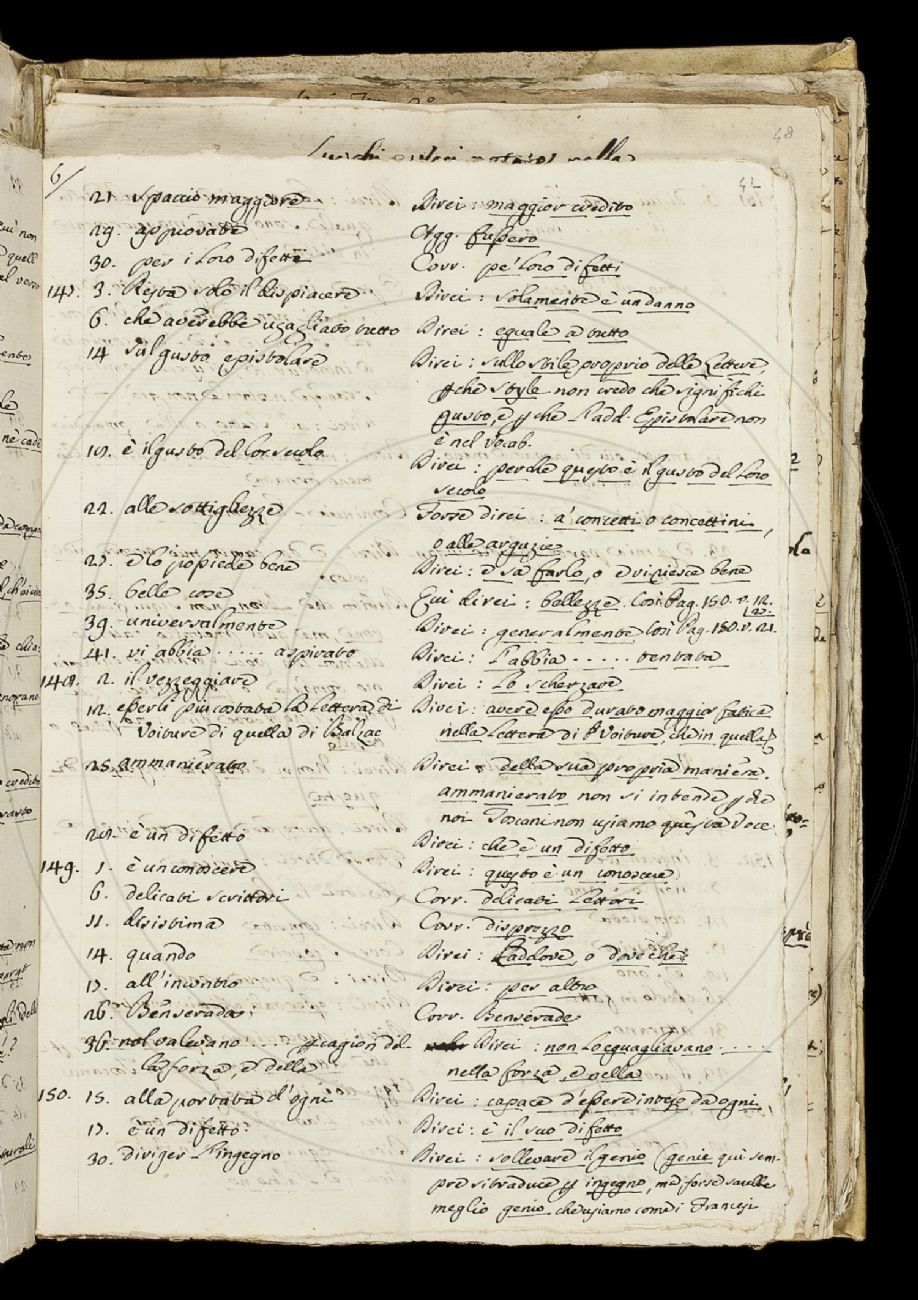 48
Luochi
42
6/
21. spaccio maggiore Direi: maggior credito
29. approvate Agg. fussero
30. per i loro difetti Corr. pe' loro difetti
147. 3. Resta solo il dispiacere Direi: solamente è un danno
6. che averebbe uguagliato tutto Direi: eguale a tutto
14 sul gusto epistolare Direi: sullo stile proprio delle Lettere,
che style non credo che significhi
gusto, e che l'add. Epistolare non
è nel Vocab.
17. è il gusto del lor secolo Direi: perche questo è il gusto del loro
secolo
22. alle sottigliezze Forse direi: a' concetti o concettini,
o alle arguzie
27. e lo possiede bene Direi: e sa farlo, o e vi riesce bene
35. belle cose Qui direi: bellezze. Così Pag. 150. v. 12.
39. universalmente Direi: generalmente Così Pag. 150. v. 21.
41. vi abbia ...... aspirato Direi: l'abbia ...... tentata
148. 2. il vezzeggiare Direi: Lo scherzare
12. e perli più costata la Lettera di Direi: avere esso durato maggior fatica
Voiture di quella di Balzac nella Lettera di Voiture, che in quella
25. ammanierato Direi della sua propria maniera.
ammanierato non si intende che
noi Toscani non usiamo questa Voce
27. è un difetto Direi: che è un difetto
149. 1. è un conoscere Direi: questo è un conoscere
6. delicati scrittori Corr. delicati Lettori
11. disistima Corr. disprezzo
14. quando Direi: Laddove, o dove che
17. all'incontro Direi: per altro
26. Benserada: Corr. Benserade
36. nol valevano .... cagion del- Direi: non lo eguagliavano .....
la forza, e della nella forza, e nella
150. 15. alla portata d'ogni Direi: capace d'essere inteso da ogni
17. è un difetto: Direi: è il suo difetto
30. diriger l'ingegno Direi: sollevare il genio (genie qui sem-
pre si traduce ingegno, ma forse sarebbe
meglio genio che usiamo come i Francesi